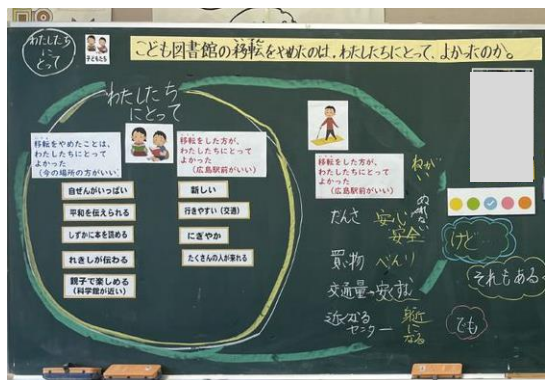 わたしたち
にとって
子どもたち
こども図書館の移転をやめたのは、わたしたちにとって、よかったのか。
わたしたち
にとって
移転をやめたことは、
わたしたちにとって
よかった
（今の場所の方がいい）
自ぜんがいっぱい
平和を伝えられる
しずかに本を読める
れきしが伝わる
親子で楽しめる
（科学館が近い）
移転をした方が、
わたしたちにとって
よかった
（広島駅前がいい）
新しい
行きやすい（交通）
にぎやか
たくさんの人が来れる
移転をした方が、
わたしたちにとって
よかった
（広島駅前がいい）
安心
安全
買い物 べんり
交通量
近くなる
センター
身近
に
なる
けど…
それもある
でも